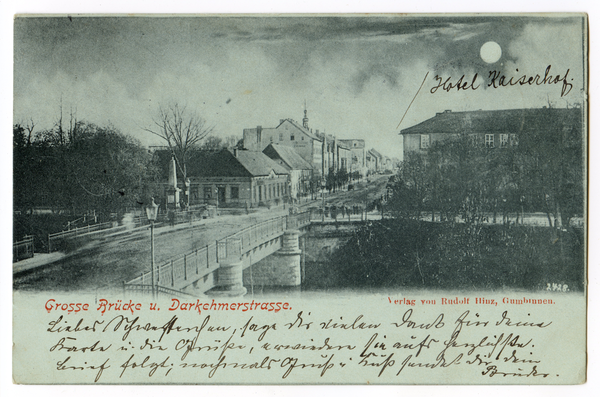 Hotel Kaiserhof.
2428.
Grosse Brücke u. Darkehmerstrasse.
Verlag von Rudolf Hinz, Gumbinnen.
Liebes Schwesterchen, sage dir vielen Dank für deine
Karte u. die Grüße, erwiedere sie aufs herzlichste.
Brief folgt; nochmals Gruß u. Kuß sendet dir dein
Bruder.